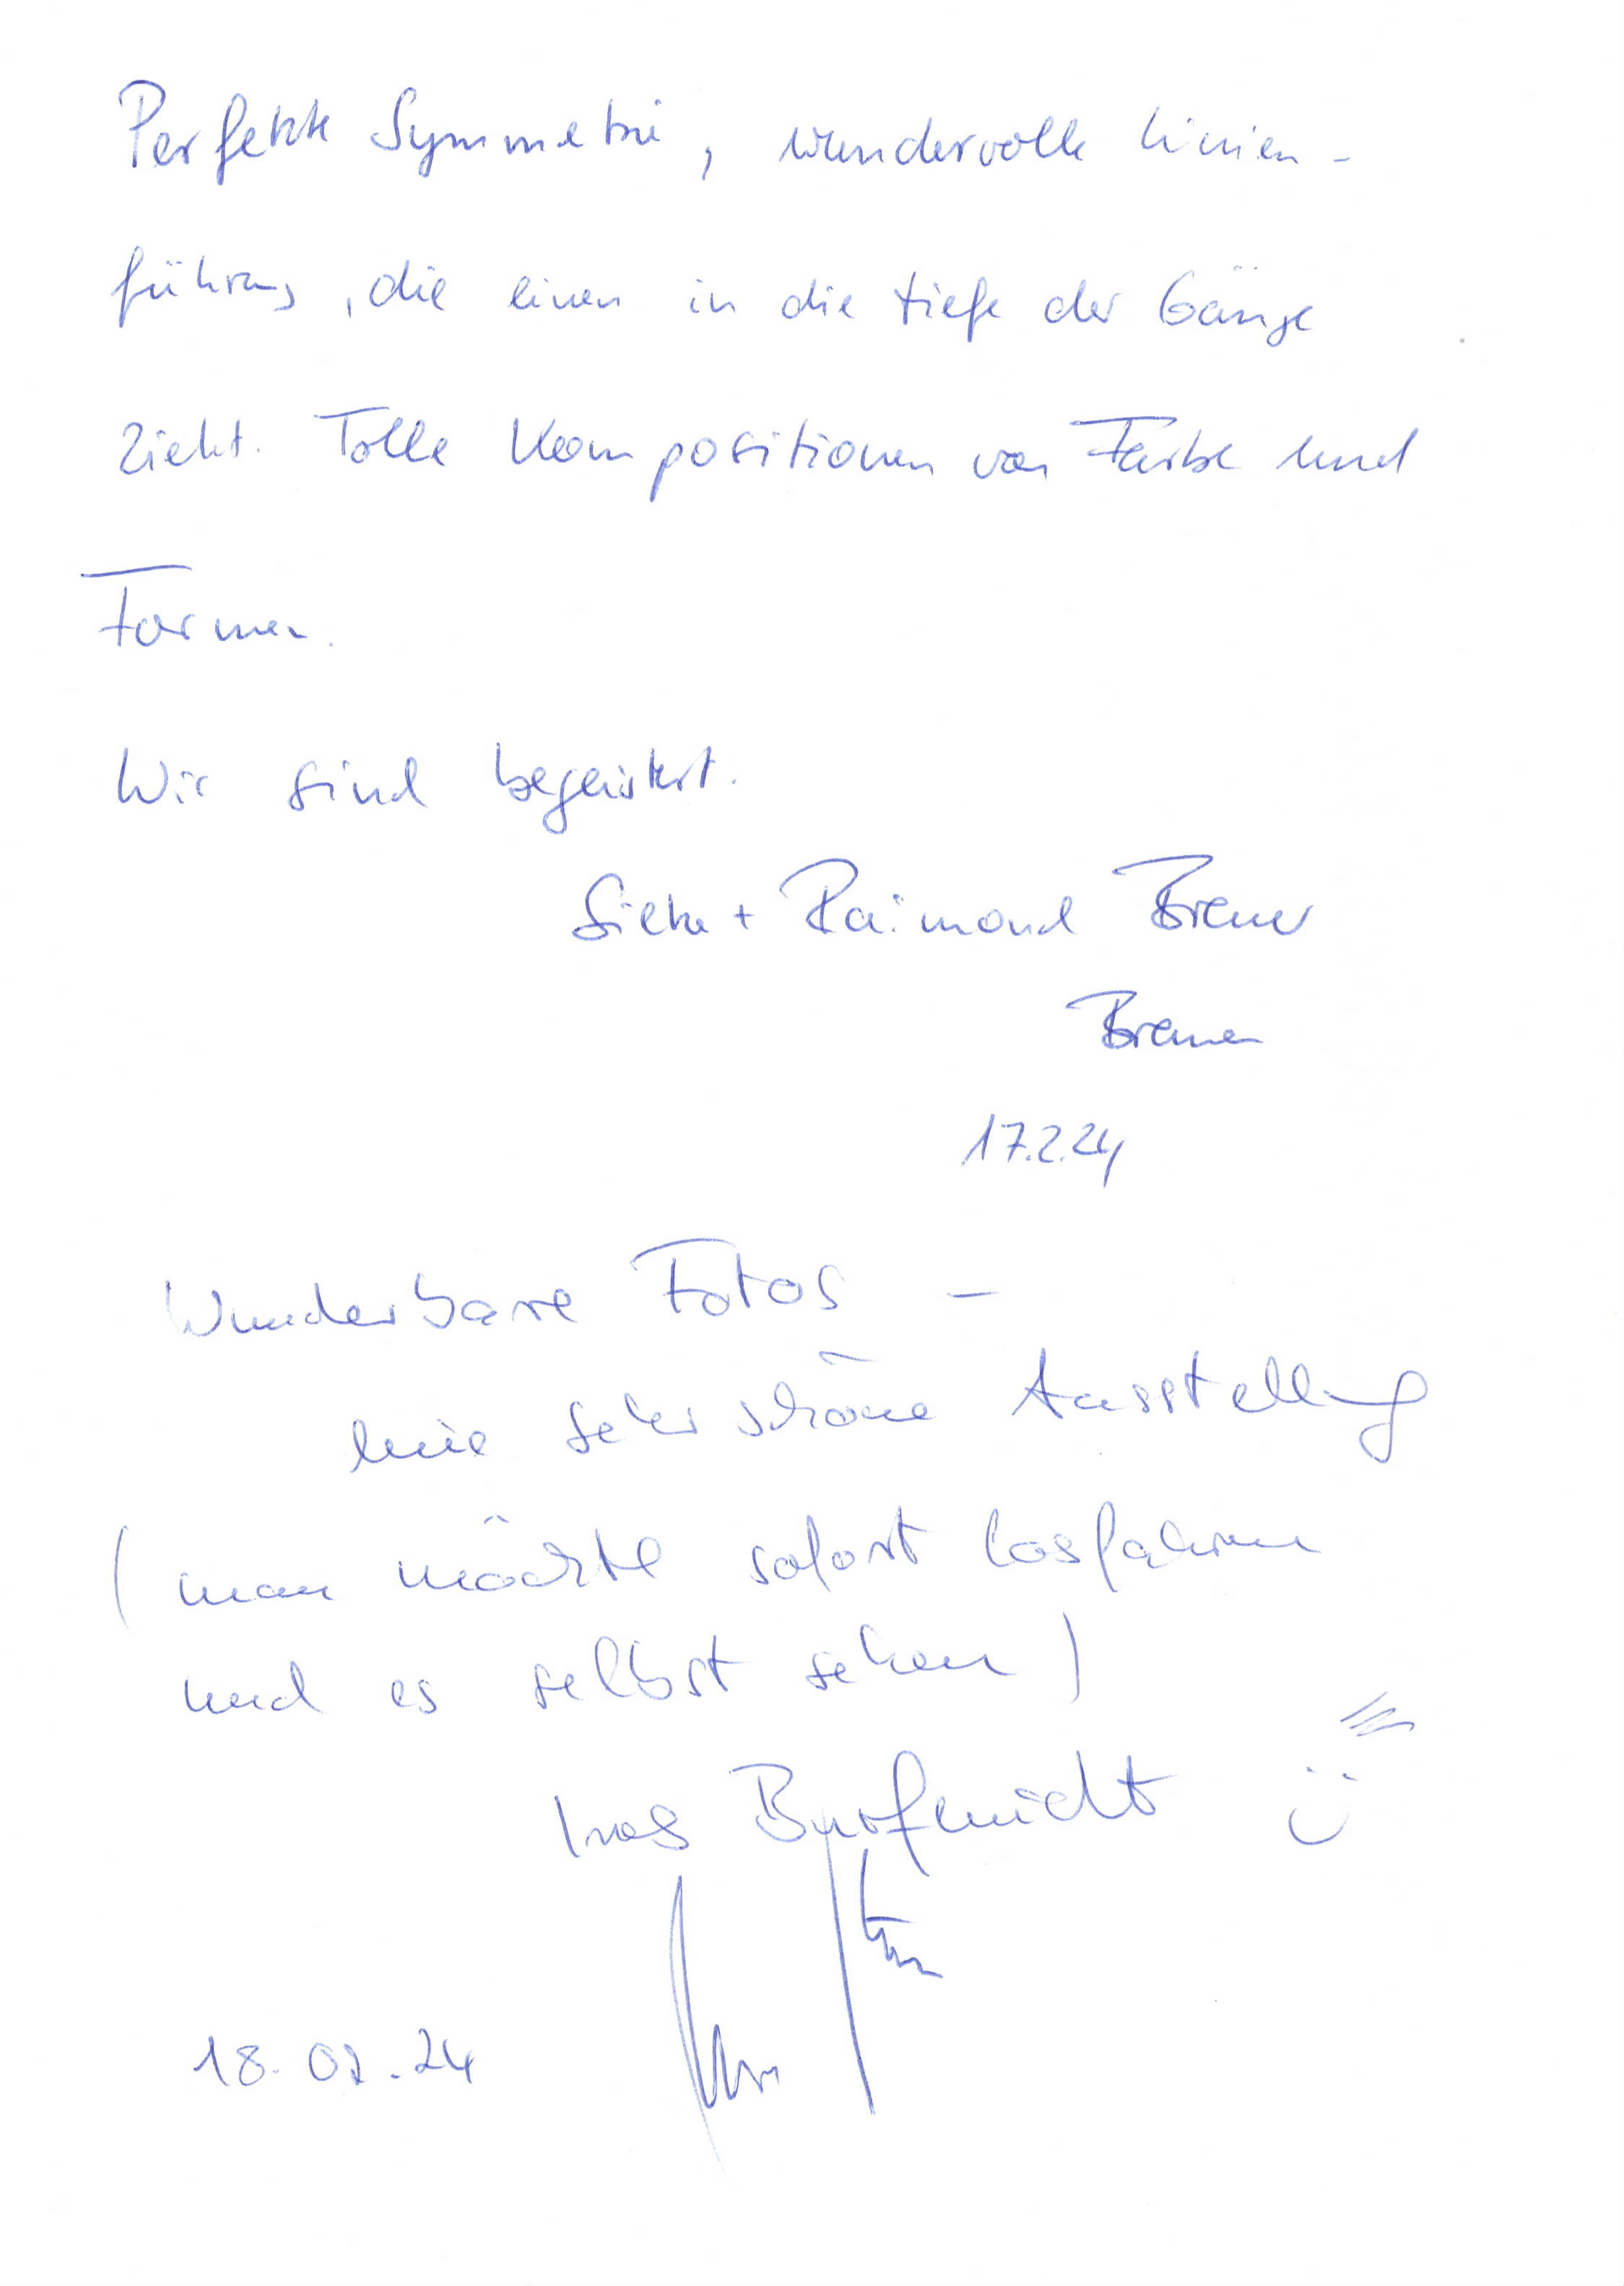 Perfekte Symmetrie, wundervolle Linien-
führung, die einen in die Tiefe der Gänge
zieht. Tolle Kompositionen von Farbe und
Formen.
Wir sind begeistert.
Silke + Raimond Bremer
Bremen
17.2.24
Wunderbare Fotos –
eine sehr schöne Ausstellung
(man möchte sofort losfahren
und es selbst sehen)
Ines
18.02.24